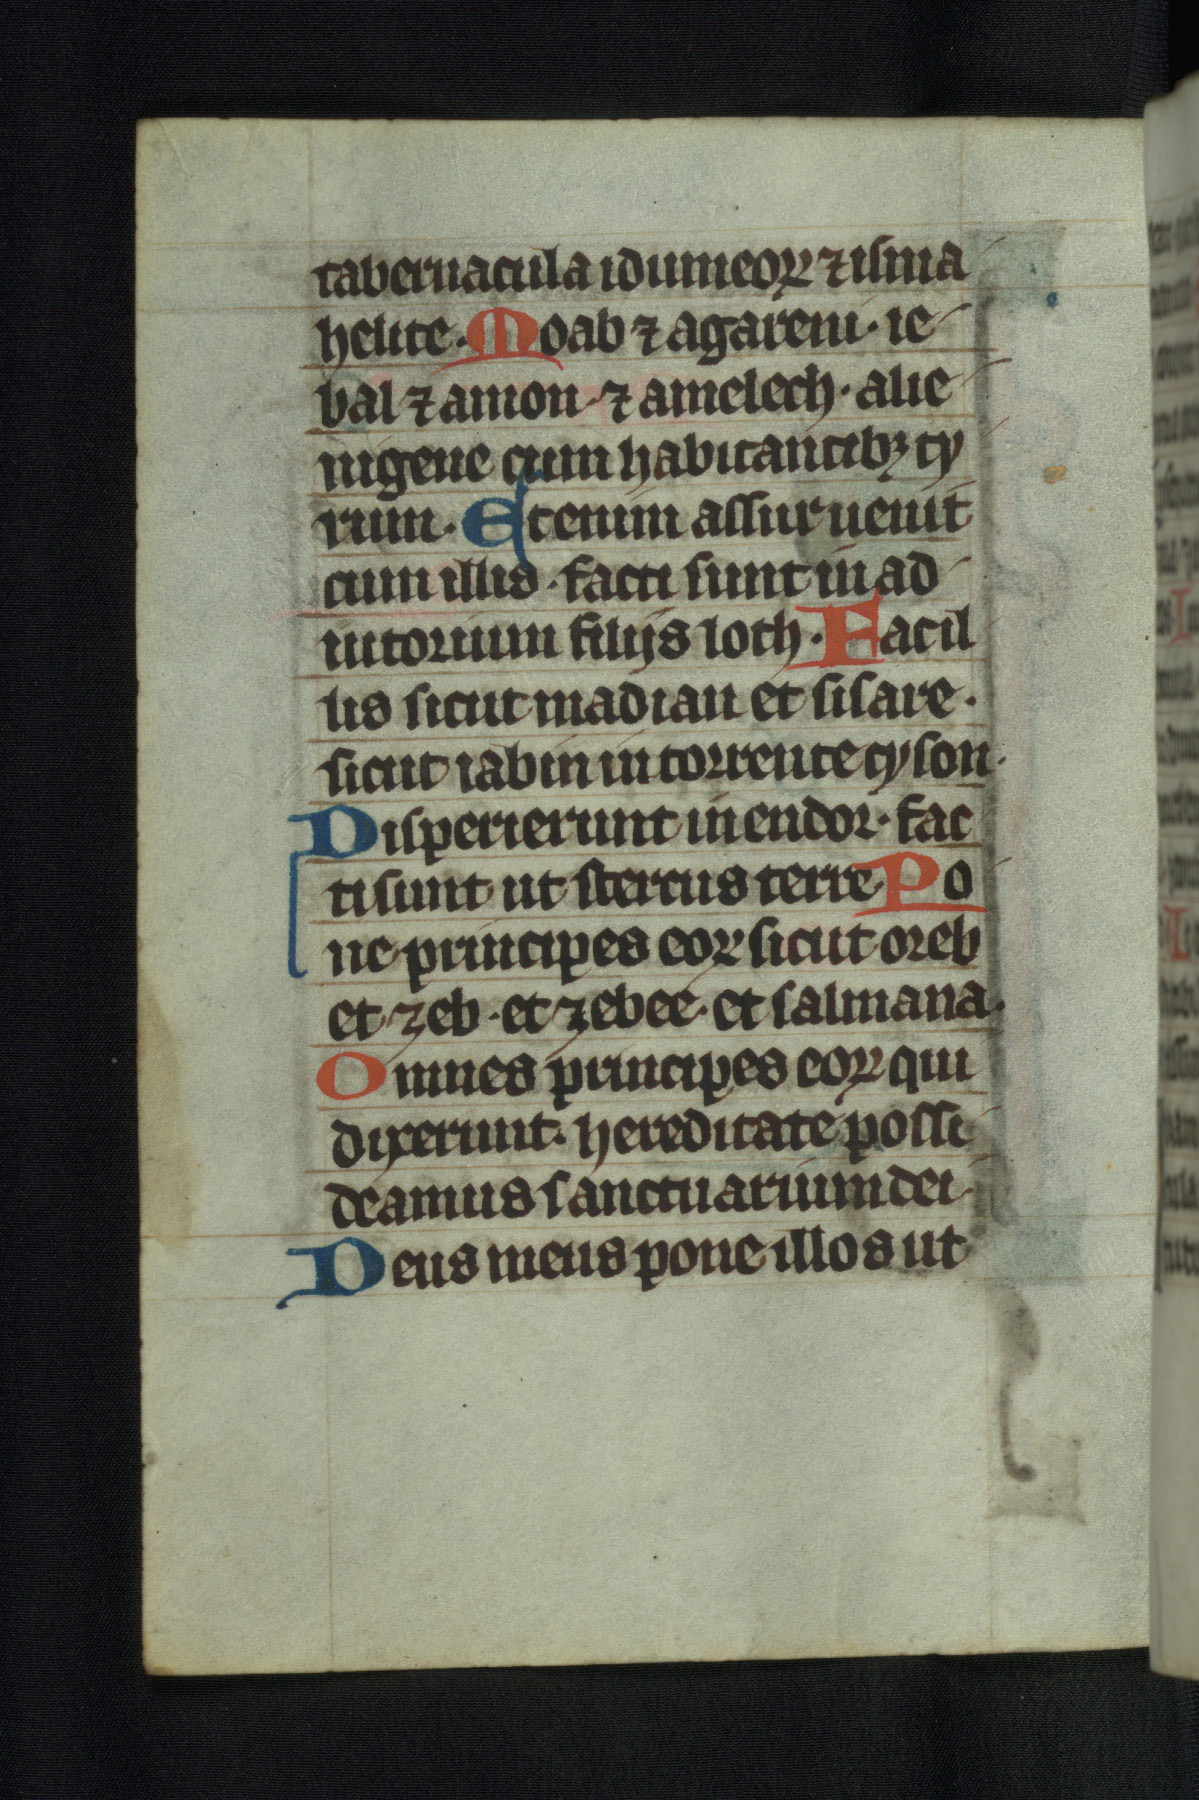 tabernacula idumeoꝝ ⁊ isma
helite. Moab ⁊ agareni. ie
bal ⁊ amon ⁊ amelech. alie
nigene cum habitantibꝫ ty
rum. Etenim assur uenit
cum illis. facti sunt in ad
iutorium filijs loth. Facil
lis sicut madian et sisare.
sicut iabin in torrente cyson.
Disperierunt in endor. fac
ti sunt ut stercus terre Po
ne principes eoꝝ sicut oreb
et zeb. et zebee. et salmana.
Omnes principes eoꝝ qui
dixerunt. hereditate possi
deamus sanctuarium dei
Deus meus pone illos ut